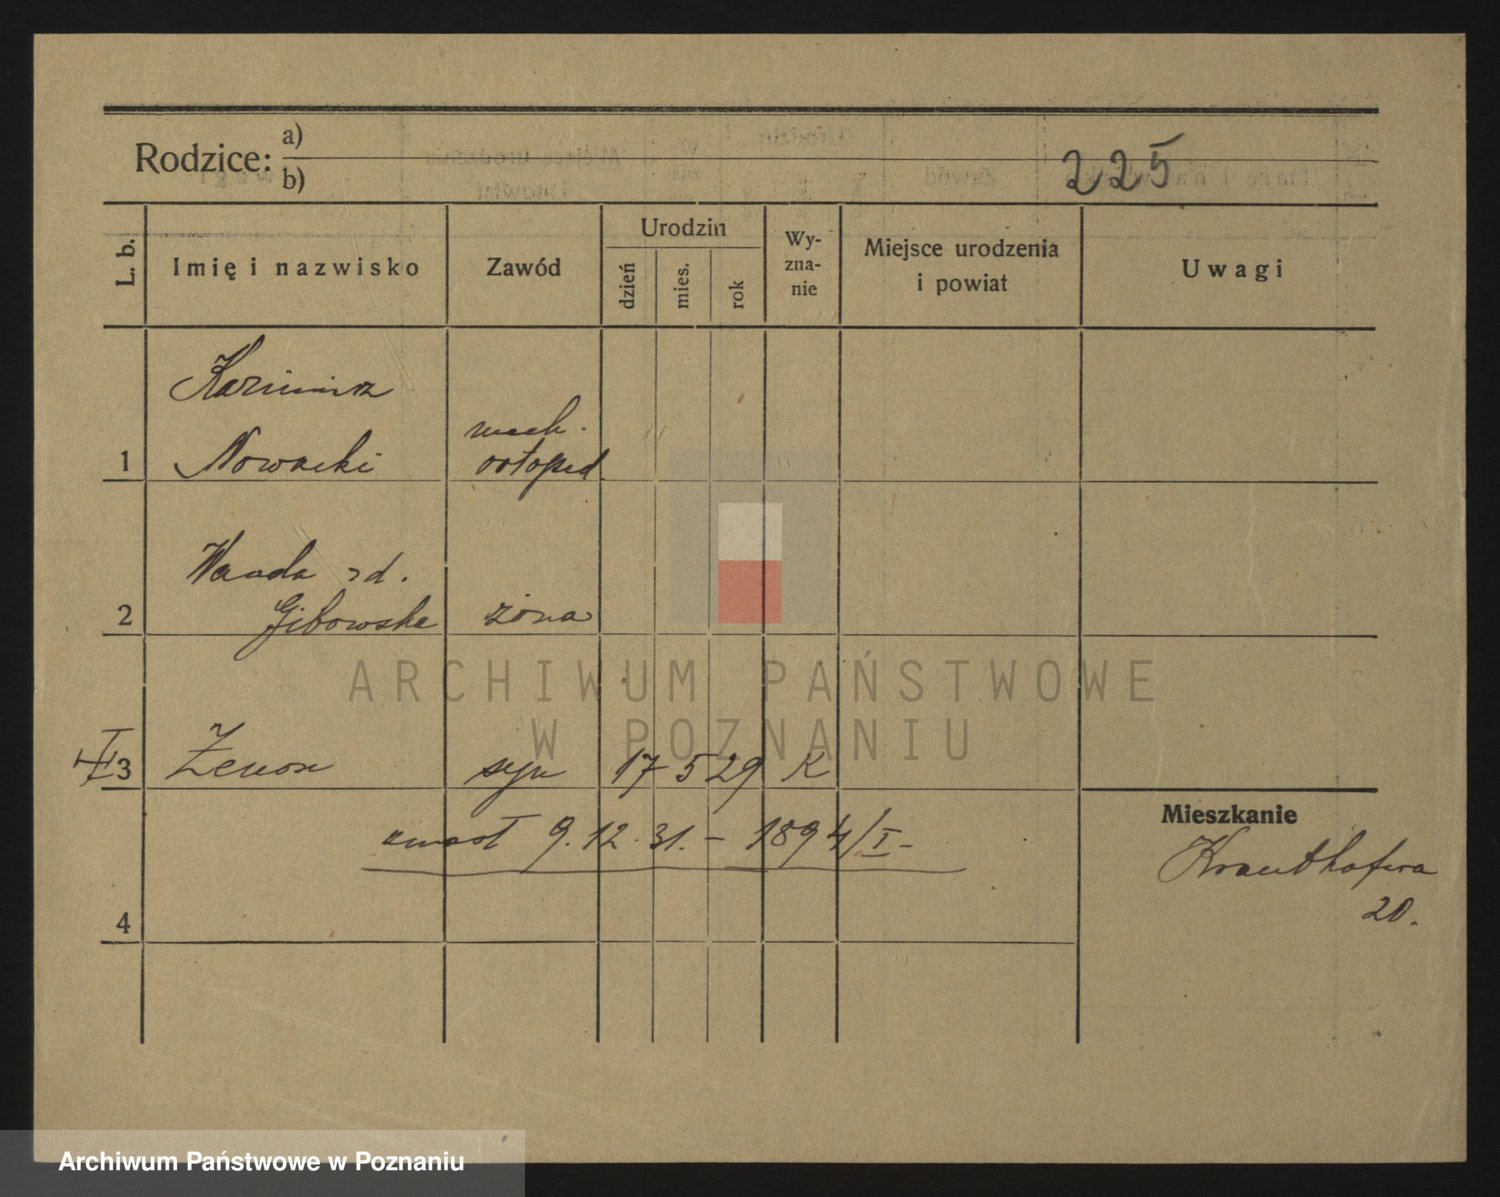 Rodzice:
a)
b)
225
L. b.
Imię i nazwisko
Zawód
Urodzin
dzień
mies.
rok
Wy-
zna-
nie
Miejsce urodzenia
i powiat
Uwagi
Kazimierz
1 Nowacki
mech.
ortoped
Wanda zd.
2 Gibowska żona
3 Zenon syn 17 5 29 K
zmarł 9.12.31. – 1894/I –
4
Mieszkanie
Krauthofera
20.
ARCHIWUM PAŃSTWOWE
W POZNANIU
Archiwum Państwowe w Poznaniu